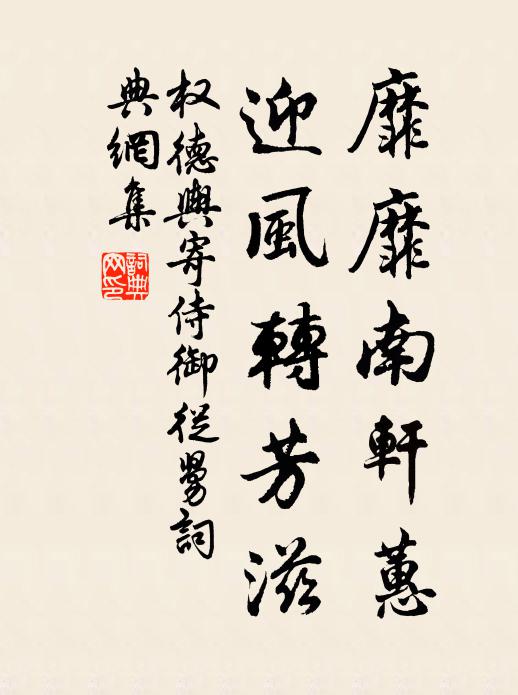 靡靡南軒蕙
迎風轉芳滋
权德輿寄侍御從舅詞
典網集
詞典网印